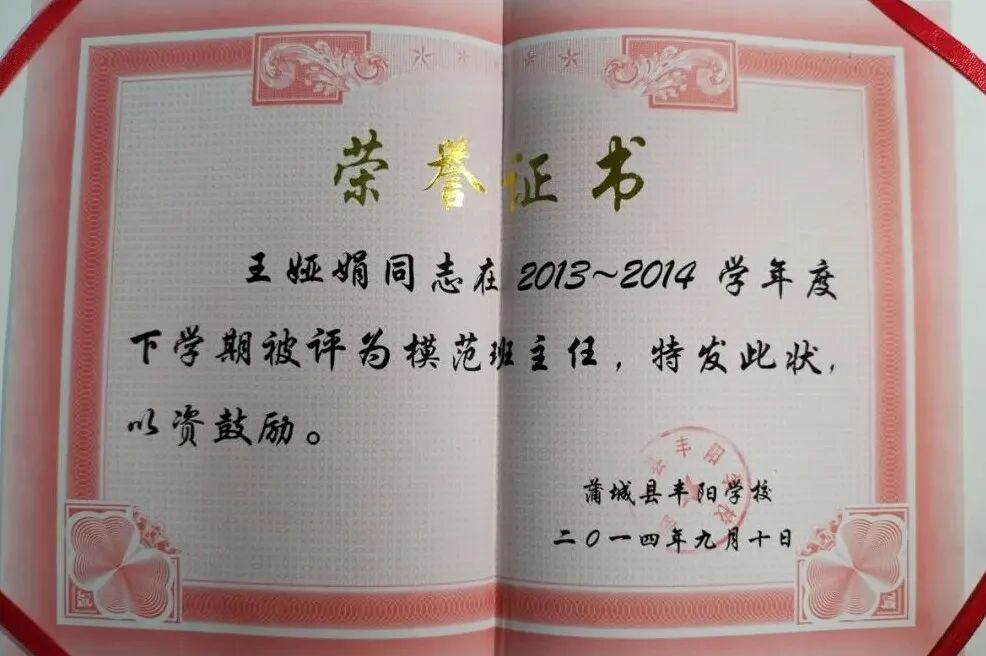 荣誉证书
王娅娟同志在2013~2014学年度
下学期被评为模范班主任，特发此状，
以资鼓励。
蒲城县丰阳学校
二〇一四年九月十日